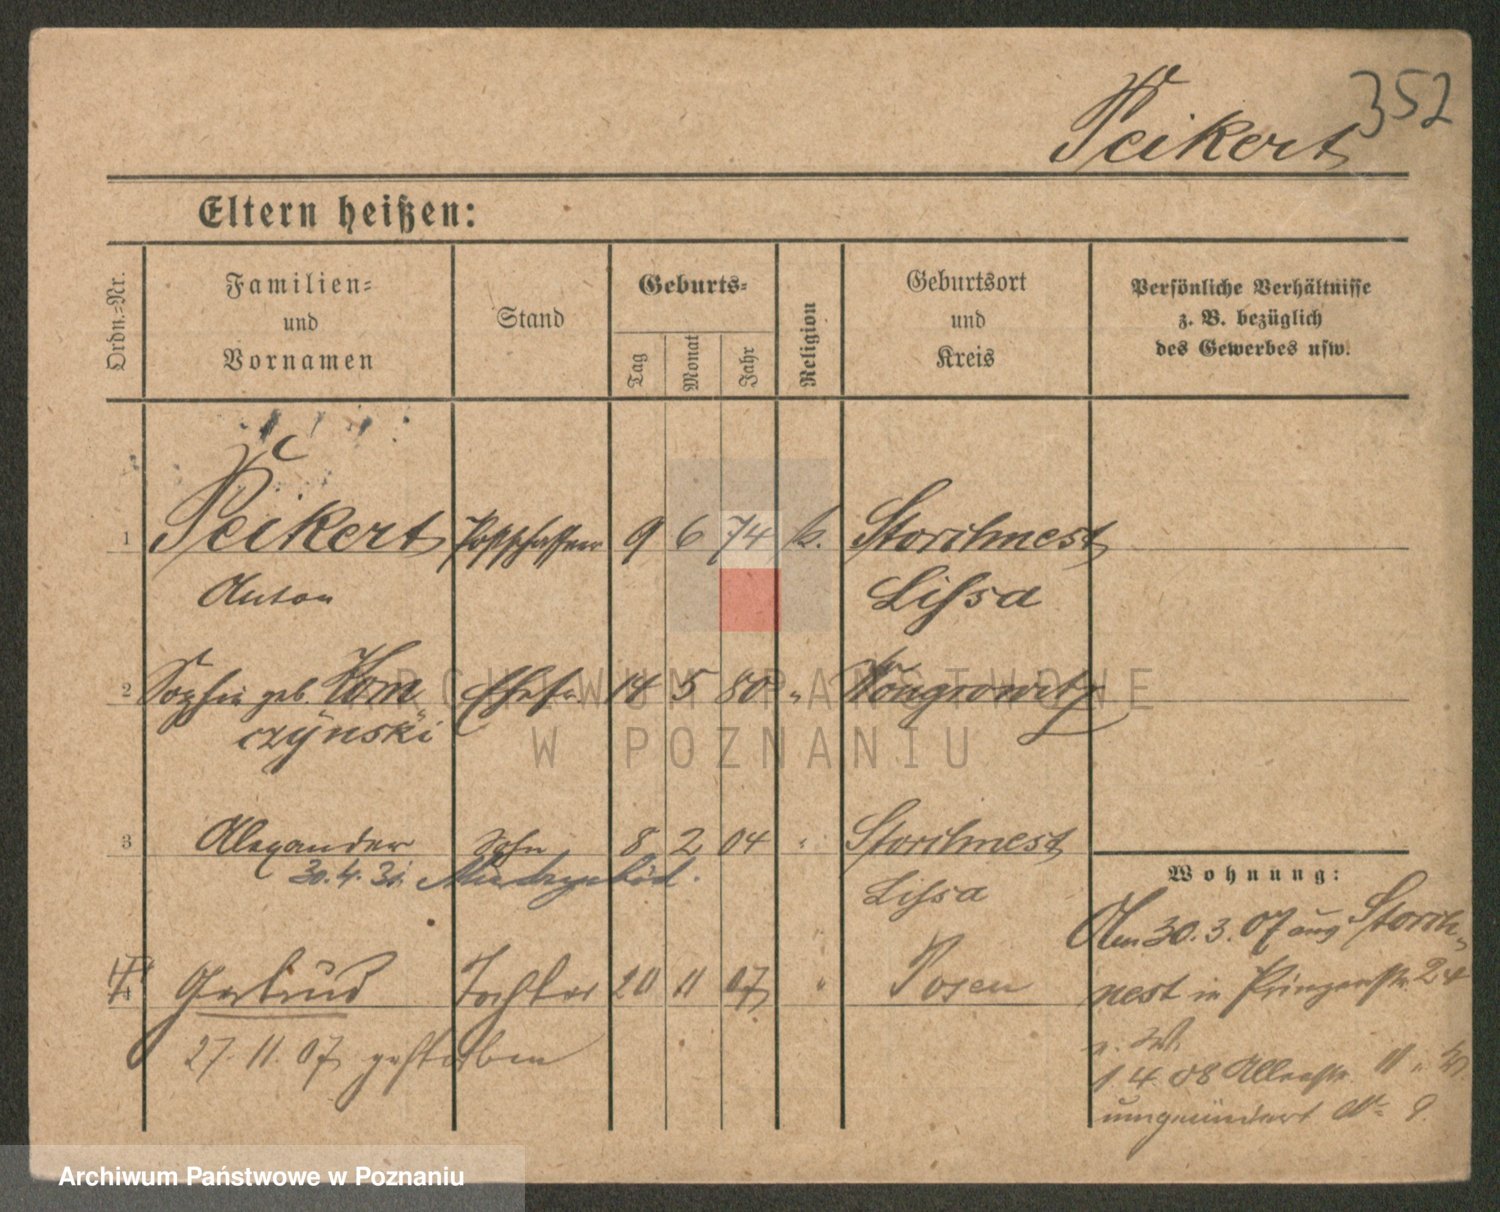 352
Peikert
Eltern heißen:
Ordn.=Nr.
Familien=
und
Vornamen
Stand
Geburts=
Tag
Monat
Jahr
Religion
Geburtsort
und
Kreis
Persönliche Verhältnisse
z. B. bezüglich
des Gewerbes usw.
1 Peikert Postschaffner 9 6 74 k. Storchnest
Anton Lissa
2 Sophie geb. Kom- Ehefr. 14 5 80 " Wongrowitz
czynski
3 Alexander Sohn 8 2 04 " Storchnest
30.4.31
Lissa
4 Gertrud Tochter 20 11 07 " Posen
27. 11. 07 gestorben
Wohnung:
Am 30. 3. 07 aus Storch-
nest in Prinzenstr. 24
1 4 08 11
ARCHIWUM PAŃSTWOWE
W POZNANIU
Archiwum Państwowe w Poznaniu